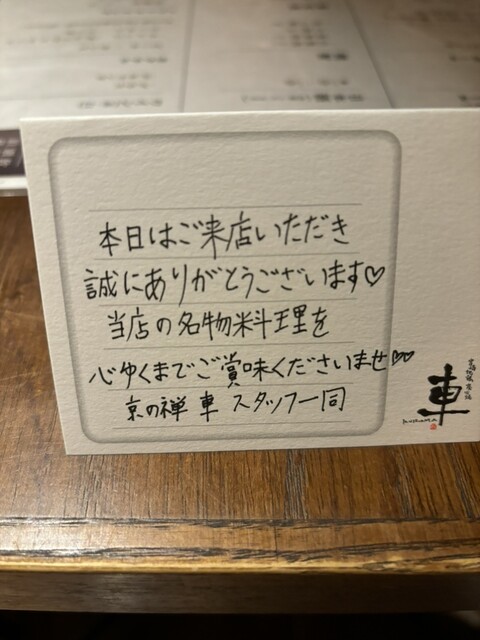 本日はご来店いただき
誠にありがとうございます♡
当店の名物料理を
心ゆくまでご賞味くださいませ♡♡
京の禅 車 スタッフ一同
車
KURUMA